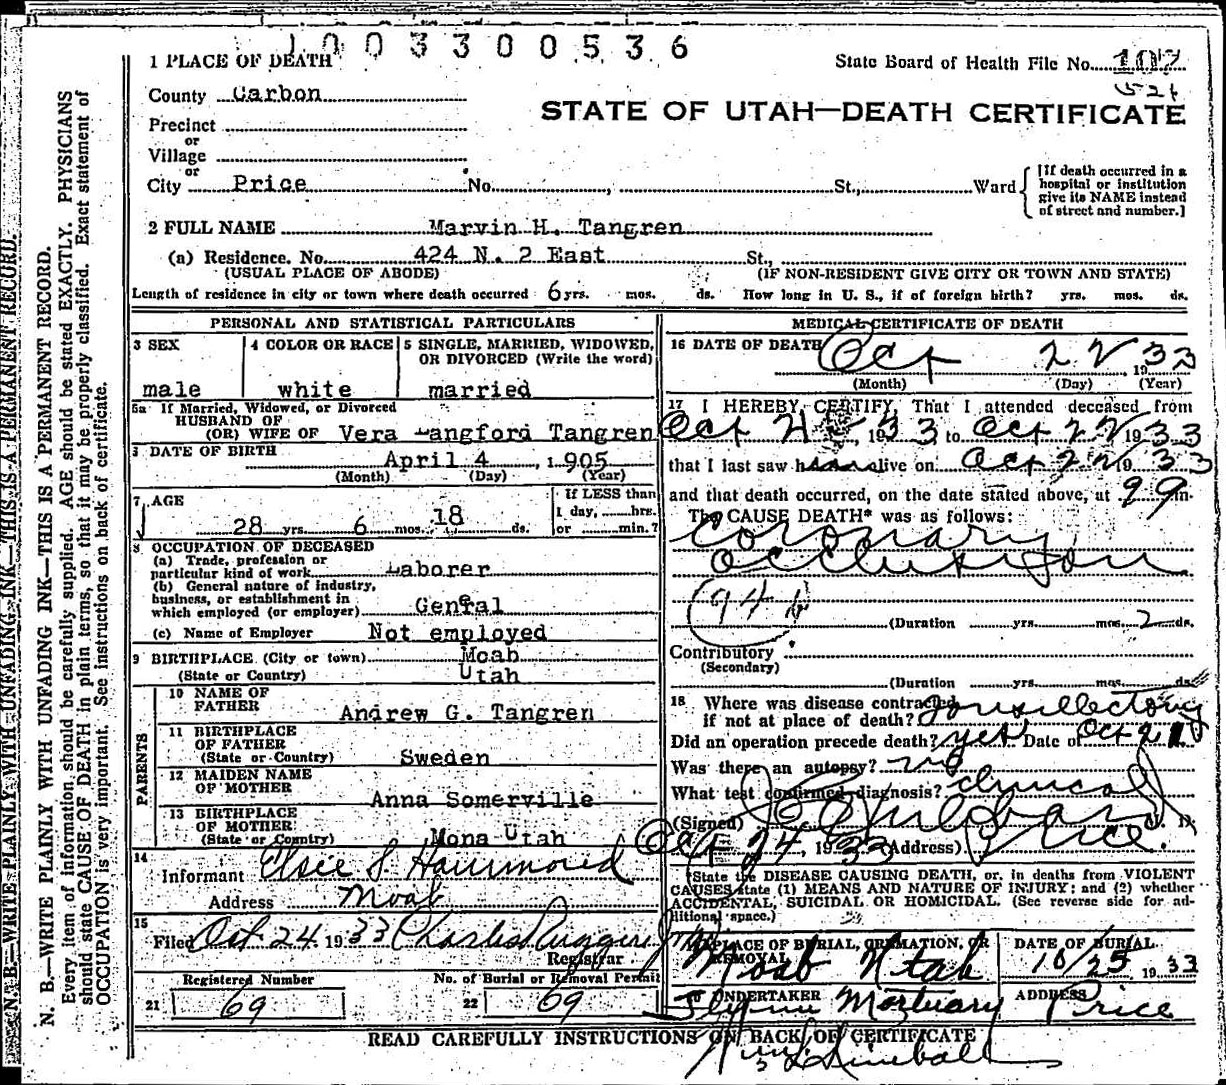 1003300536
1 PLACE OF DEATH
State Board of Health File No. 107
County Carbon
STATE OF UTAH—DEATH CERTIFICATE
Precinct
or
Village
or
City Price No. , St., Ward
[If death occurred in a hospital or institution give its NAME instead of street and number.]
2 FULL NAME Marvin H. Tangren
(a) Residence. No. 424 N. 2 East St.,
(USUAL PLACE OF ABODE) (IF NON-RESIDENT GIVE CITY OR TOWN AND STATE)
Length of residence in city or town where death occurred 6 yrs. mos. ds. How long in U. S., if of foreign birth? yrs. mos. ds.
PERSONAL AND STATISTICAL PARTICULARS
3 SEX 4 COLOR OR RACE 5 SINGLE, MARRIED, WIDOWED, OR DIVORCED (Write the word)
male white married
5a If Married, Widowed, or Divorced
HUSBAND OF
(OR) WIFE OF Vera Langford Tangren
DATE OF BIRTH
April 4, 1905
(Month) (Day) (Year)
7 AGE If LESS than
1 day, hrs.
28 yrs. 6 mos. 18 ds. or min.?
8 OCCUPATION OF DECEASED
(a) Trade, profession or
particular kind of work Laborer
(b) General nature of industry,
business, or establishment in
which employed (or employer) General
(c) Name of Employer Not employed
9 BIRTHPLACE (City or town) Moab
(State or Country) Utah
PARENTS
10 NAME OF
FATHER Andrew G. Tangren
11 BIRTHPLACE
OF FATHER
(State or Country) Sweden
12 MAIDEN NAME
OF MOTHER Anna Somerville
13 BIRTHPLACE
OF MOTHER
(State or Country) Mona Utah
14
Informant Elsie S. Hammond
Address Moab
15
Filed Oct 24 1933 Charles Ruggeri
Registrar
Registered Number No. of Burial or Removal Permit
21 69 22 69
MEDICAL CERTIFICATE OF DEATH
16 DATE OF DEATH Oct 22 1933
(Month) (Day) (Year)
17 I HEREBY CERTIFY, That I attended deceased from
Oct 21, 1933 to Oct 22 1933
that I last saw h alive on Oct 22 1933
and that death occurred, on the date stated above, at m.
The CAUSE DEATH* was as follows:
Coronary
Occlusion
94 b
(Duration yrs. mos. 2 ds.
Contributory
(Secondary)
(Duration yrs. mos. ds.
18 Where was disease contracted
if not at place of death? Tonsillectomy
Did an operation precede death? yes Date of Oct 21
Was there an autopsy? no
What test confirmed diagnosis? clinical
(Signed) M. D.
Oct 24, 1933 (Address) Price.
*State the DISEASE CAUSING DEATH, or, in deaths from VIOLENT
CAUSES, state (1) MEANS AND NATURE OF INJURY; and (2) whether
ACCIDENTAL, SUICIDAL OR HOMICIDAL. (See reverse side for ad-
ditional space.)
PLACE OF BURIAL, CREMATION, OR REMOVAL DATE OF BURIAL
Moab Utah 10/25 1933
UNDERTAKER ADDRESS
Flynn Mortuary Price
READ CAREFULLY INSTRUCTIONS ON BACK OF CERTIFICATE
N. B.—WRITE PLAINLY WITH UNFADING INK—THIS IS A PERMANENT RECORD.
N. B.—WRITE PLAINLY WITH UNFADING INK—THIS IS A PERMANENT RECORD.
Every item of information should be carefully supplied. AGE should be stated EXACTLY. PHYSICIANS
should state CAUSE OF DEATH in plain terms, so that it may be properly classified. Exact statement of
OCCUPATION is very important. See instructions on back of certificate.